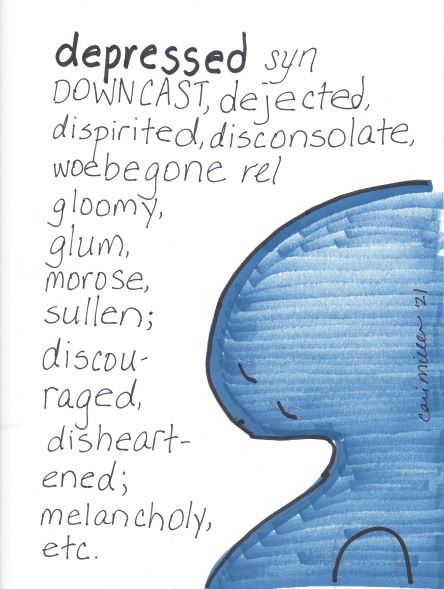 depressed syn
DOWNCAST, dejected,
dispirited, disconsolate,
woebegone rel
gloomy,
glum,
morose,
sullen;
discou-
raged,
disheart-
ened;
melancholy,
etc.
cari miller '21